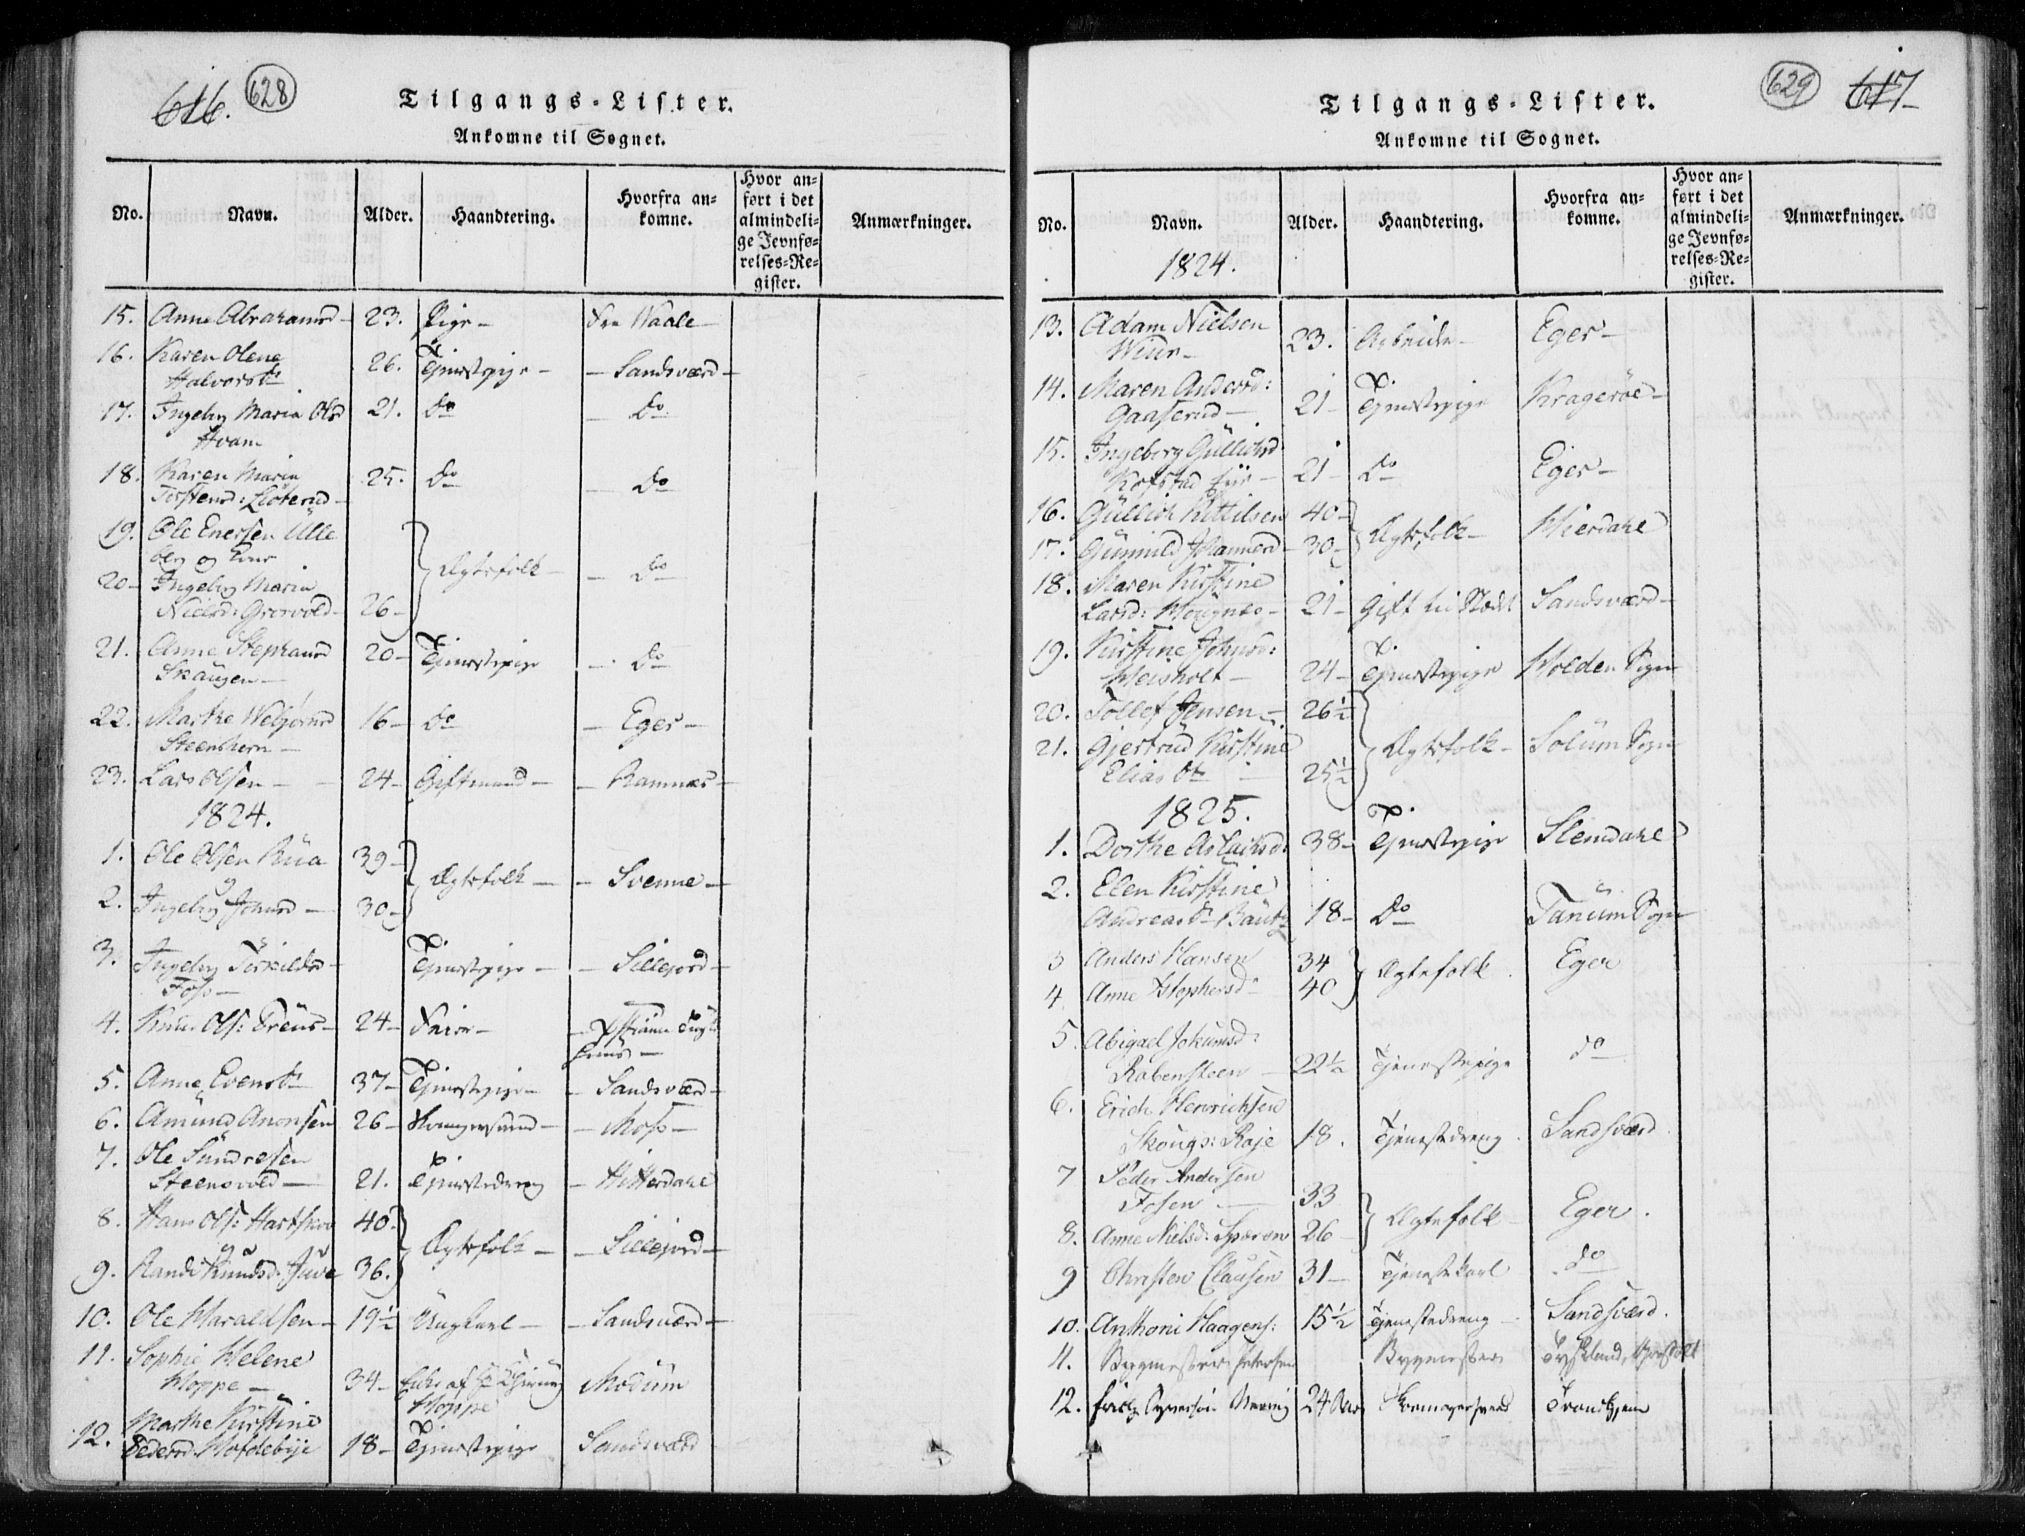 616. 628
Tilgangs-Lister.
Ankomne til Sognet.
No. Navn. Alder. Haandtering. Hvorfra ankomne. Hvor anført i det almindelige Jevnførelses-Register. Anmærkninger.
15. Anne Abrahamsd 23. Pige - Fra Waale
16. Karen Olena
Halvorsd 26. Tjenestepige - - Sandsværd -
17. Ingeborg Maria Olsd 21. do - do
Hvam
18. Karen Maria 25. do - do
Torstensd:
19. Ole Enersen Ulle
berg og Kone Ægtefolk - do
20 - Ingeborg Maria
Nielsd: Grosvold - 26 -
21. Anne Stephansd 20 - Tjenestepige - do
Skaugen -
22. Marthe Webjørnsd 16 - do - Eger -
Steenshorn -
23. Lars Olsen - 24 - Giftmand - - Ramnæs -
1824.
1. Ole Olsen Rua 39 - Ægtefolk - - Svenne -
og
2. Ingeborg Johnsd - 30 -
3. Ingeborg Torkildsd - Tjenestepige - - Sillejord -
Foss -
4. Knud Ols: 24 -
5. Anne Evensd 37 - Tjenestepige - - Sandsværd -
6. Amund Anonsen 26 - - Moss -
7. Ole Sundresen
Steensvold - 21. Tjenestedreng - Hitterdahl
8. Hans Ols: 40 Ægtefolk - - Sillejord -
og
9. Randi Knudsd. Juve 36.
10. Ole Haraldsen - 19½ Ungkarl - - Sandsværd -
11. Sophie Helene
Hoppe - 34 - Enke af Modum
Hoppe
12. Marthe Kirstine
Pedersd. 18 - Tjenestepige Sandsværd
629 617 -
Tilgangs-Lister.
Ankomne til Sognet.
No. Navn. Alder. Haandtering. Hvorfra ankomne. Hvor anført i det almindelige Jevnførelses-Register. Anmærkninger.
1824.
13. Adam Nielsen 23. Arbeider - Eger -
Wiur -
14. Maren Andersd:
Gaaserud - 21 - Tjenestepige Kragerøe -
15. Ingeborg Gullichsd
Kofstad 21 - do Eger -
16. Gullich Kittilsen 40 - Ægtefolk - Hierdahl
17. Gunnild Johannesd - 30 -
18. Maren Kirstine
Larsd: 21 - Gift til Stædet Sandsværd -
19. Kirstine Johnsd:
Meisholt - 24 - Tjenestepige Holden Sogn
20. Tollef Jensen - 26½ Ægtefolk - Solum Sogn
21. Gjertrud Kirstine
Elias Dr 25½
1825.
1. Dorthe Aslaksd: 38 - Tjenestepige Slemdahl
2. Elen Kirstine
Andreasdr 18 - Do Tanum Sogn
3 Anders Hansen 34 Ægtefolk. Eger
4. Anne Kstophersd 40
5. Abigael Jokumsd:
Rabensteen - 22½ Tjenestepige do
6. Erich Henrichsen
Skougs: Raje 18. Tjenestedreng. Sandsværd.
7 Peder Andersen
Fosen - 33 Ægtefolk Eger.
8. Anne Nielsd. 26
9 Christen Clausen 31 - Tjenestekarl do
10. Anthoni Haagens: 15½ Tjenestedreng - Sandsværd.
11. Bygmester Petersen Bygmester Tydskland,
12. 24 Trondhjem